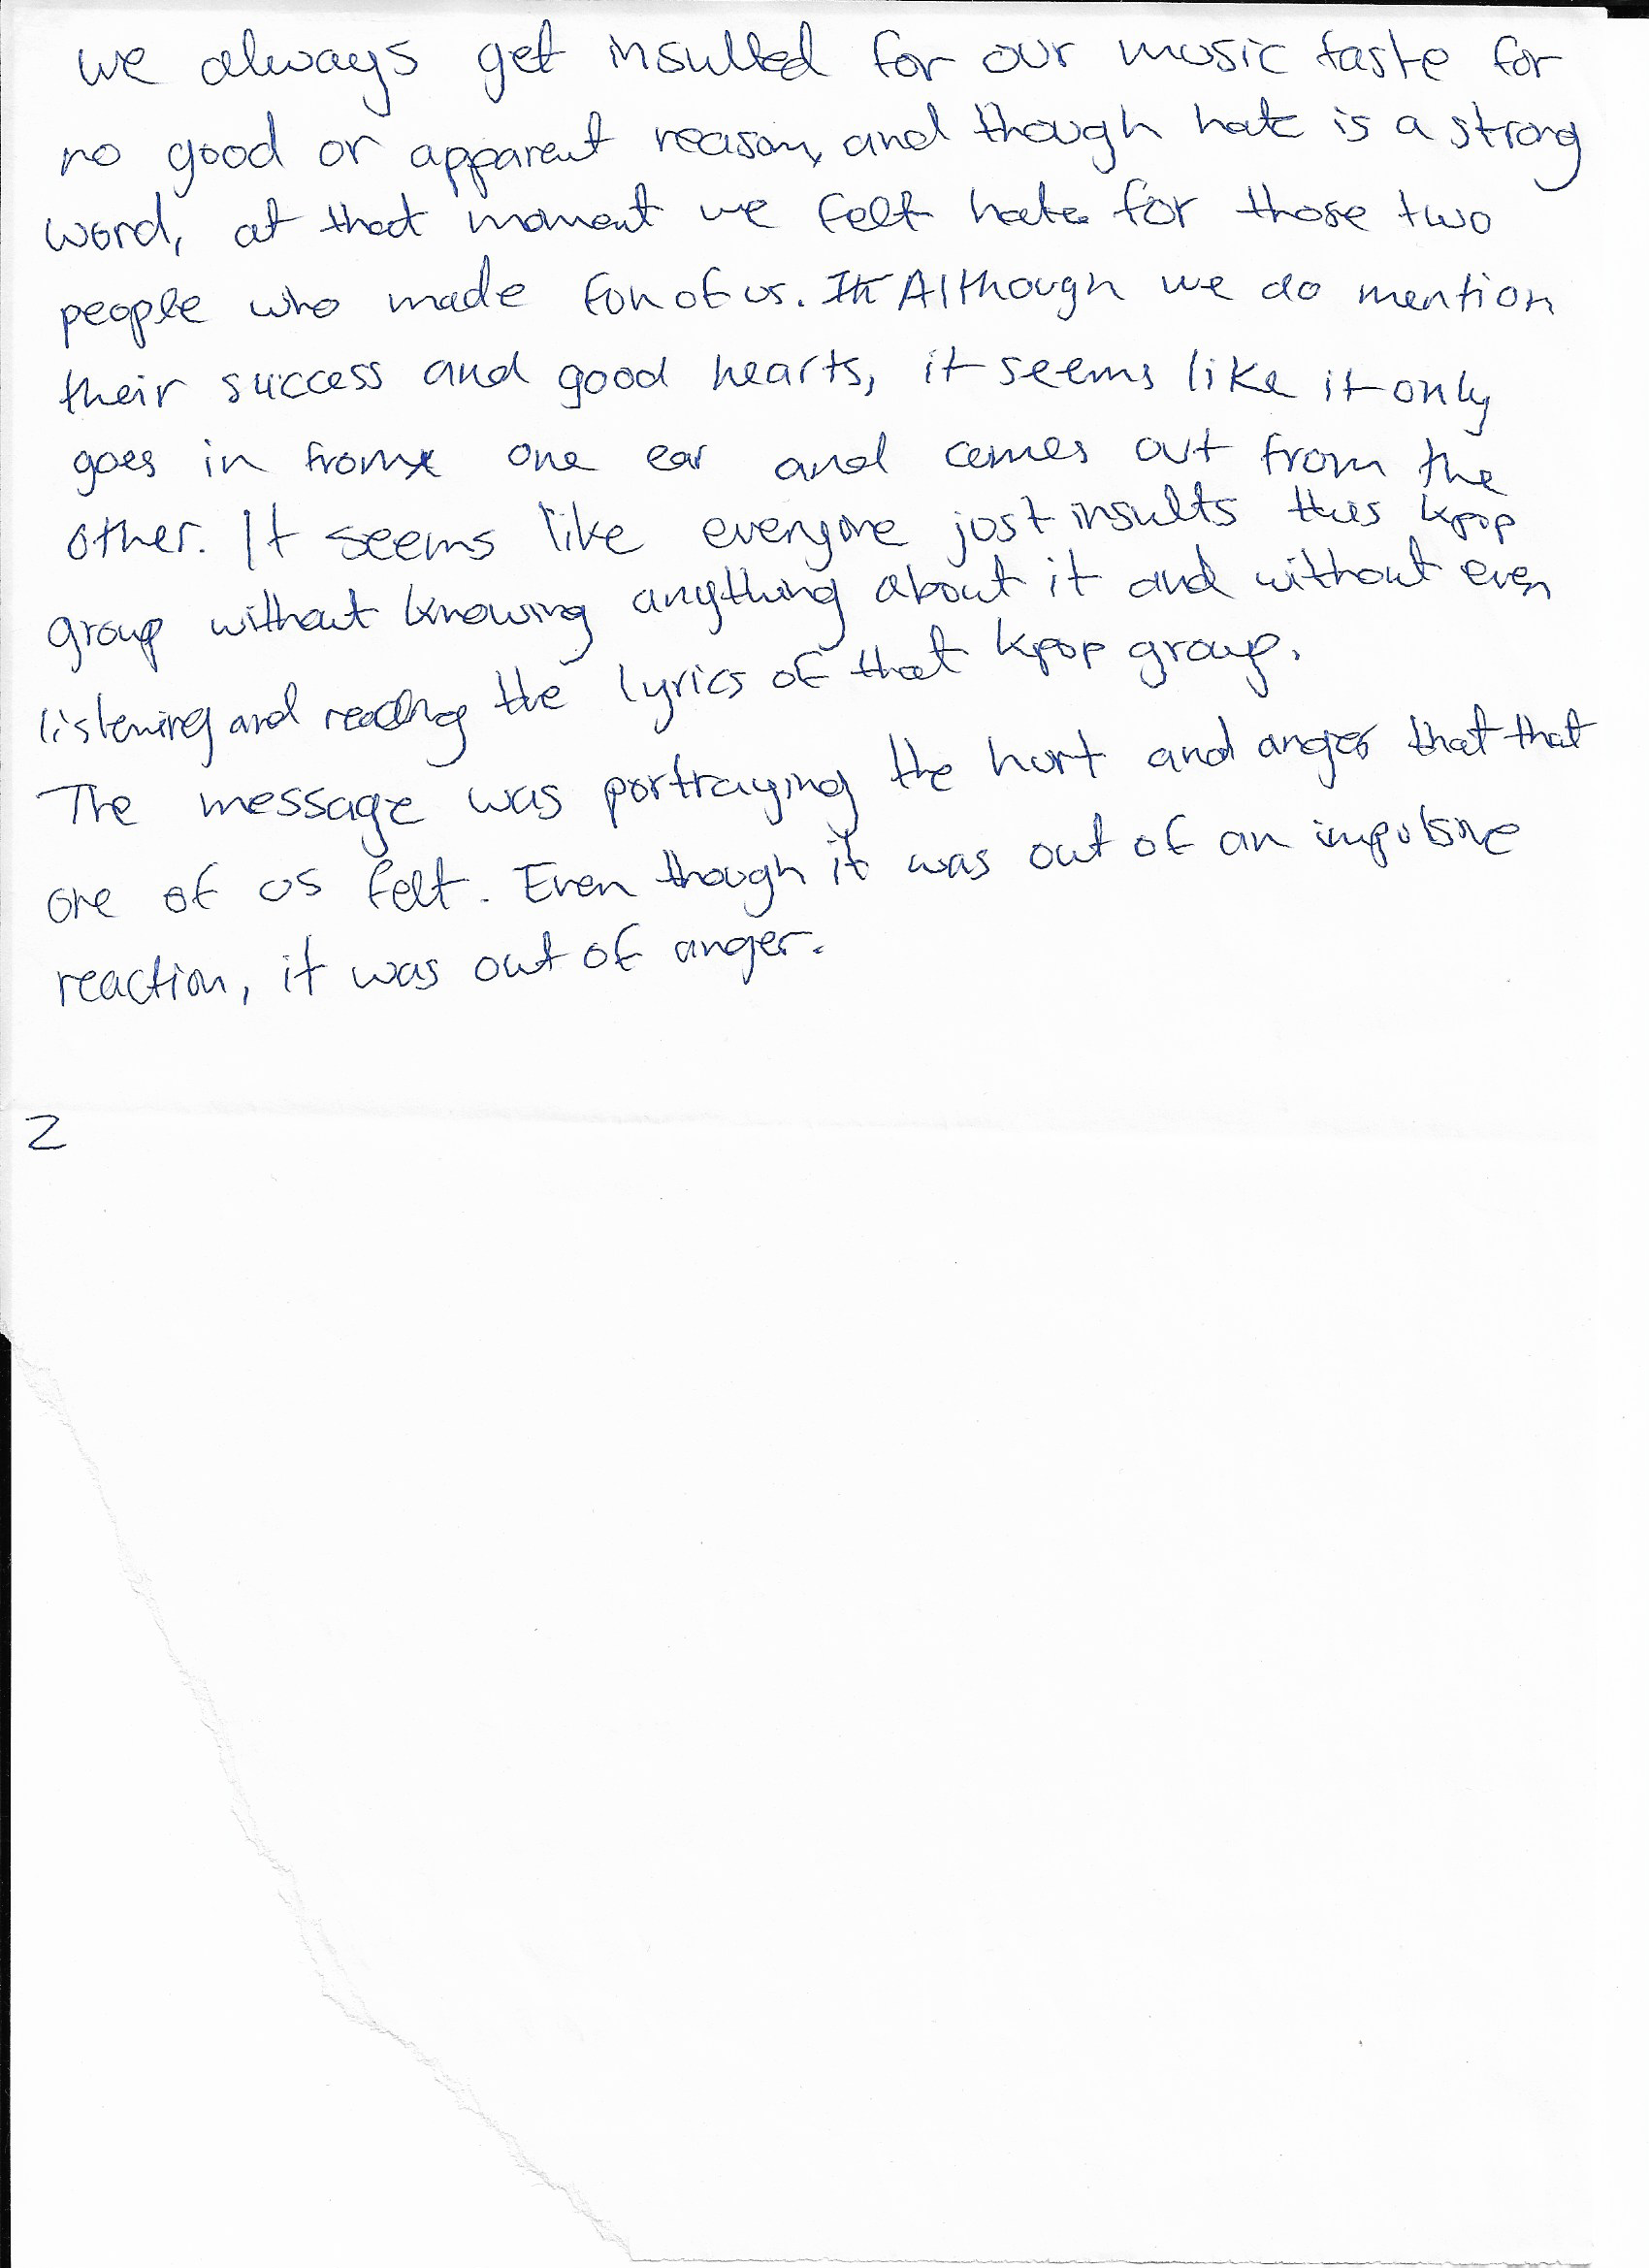 we always get insulted for our music taste for
no good or apparent reason, and though hate is a strong
word, at that moment we felt hate for those two
people who made fun of us. It Although we do mention
their success and good hearts, it seems like it only
goes in from one ear and comes out from the
other. It seems like everyone just insults this kpop
group without knowing anything about it and without even
listening and reading the lyrics of that kpop group.
The message was portraying the hurt and anger that that
one of us felt. Even though it was out of an impulsive
reaction, it was out of anger.
2